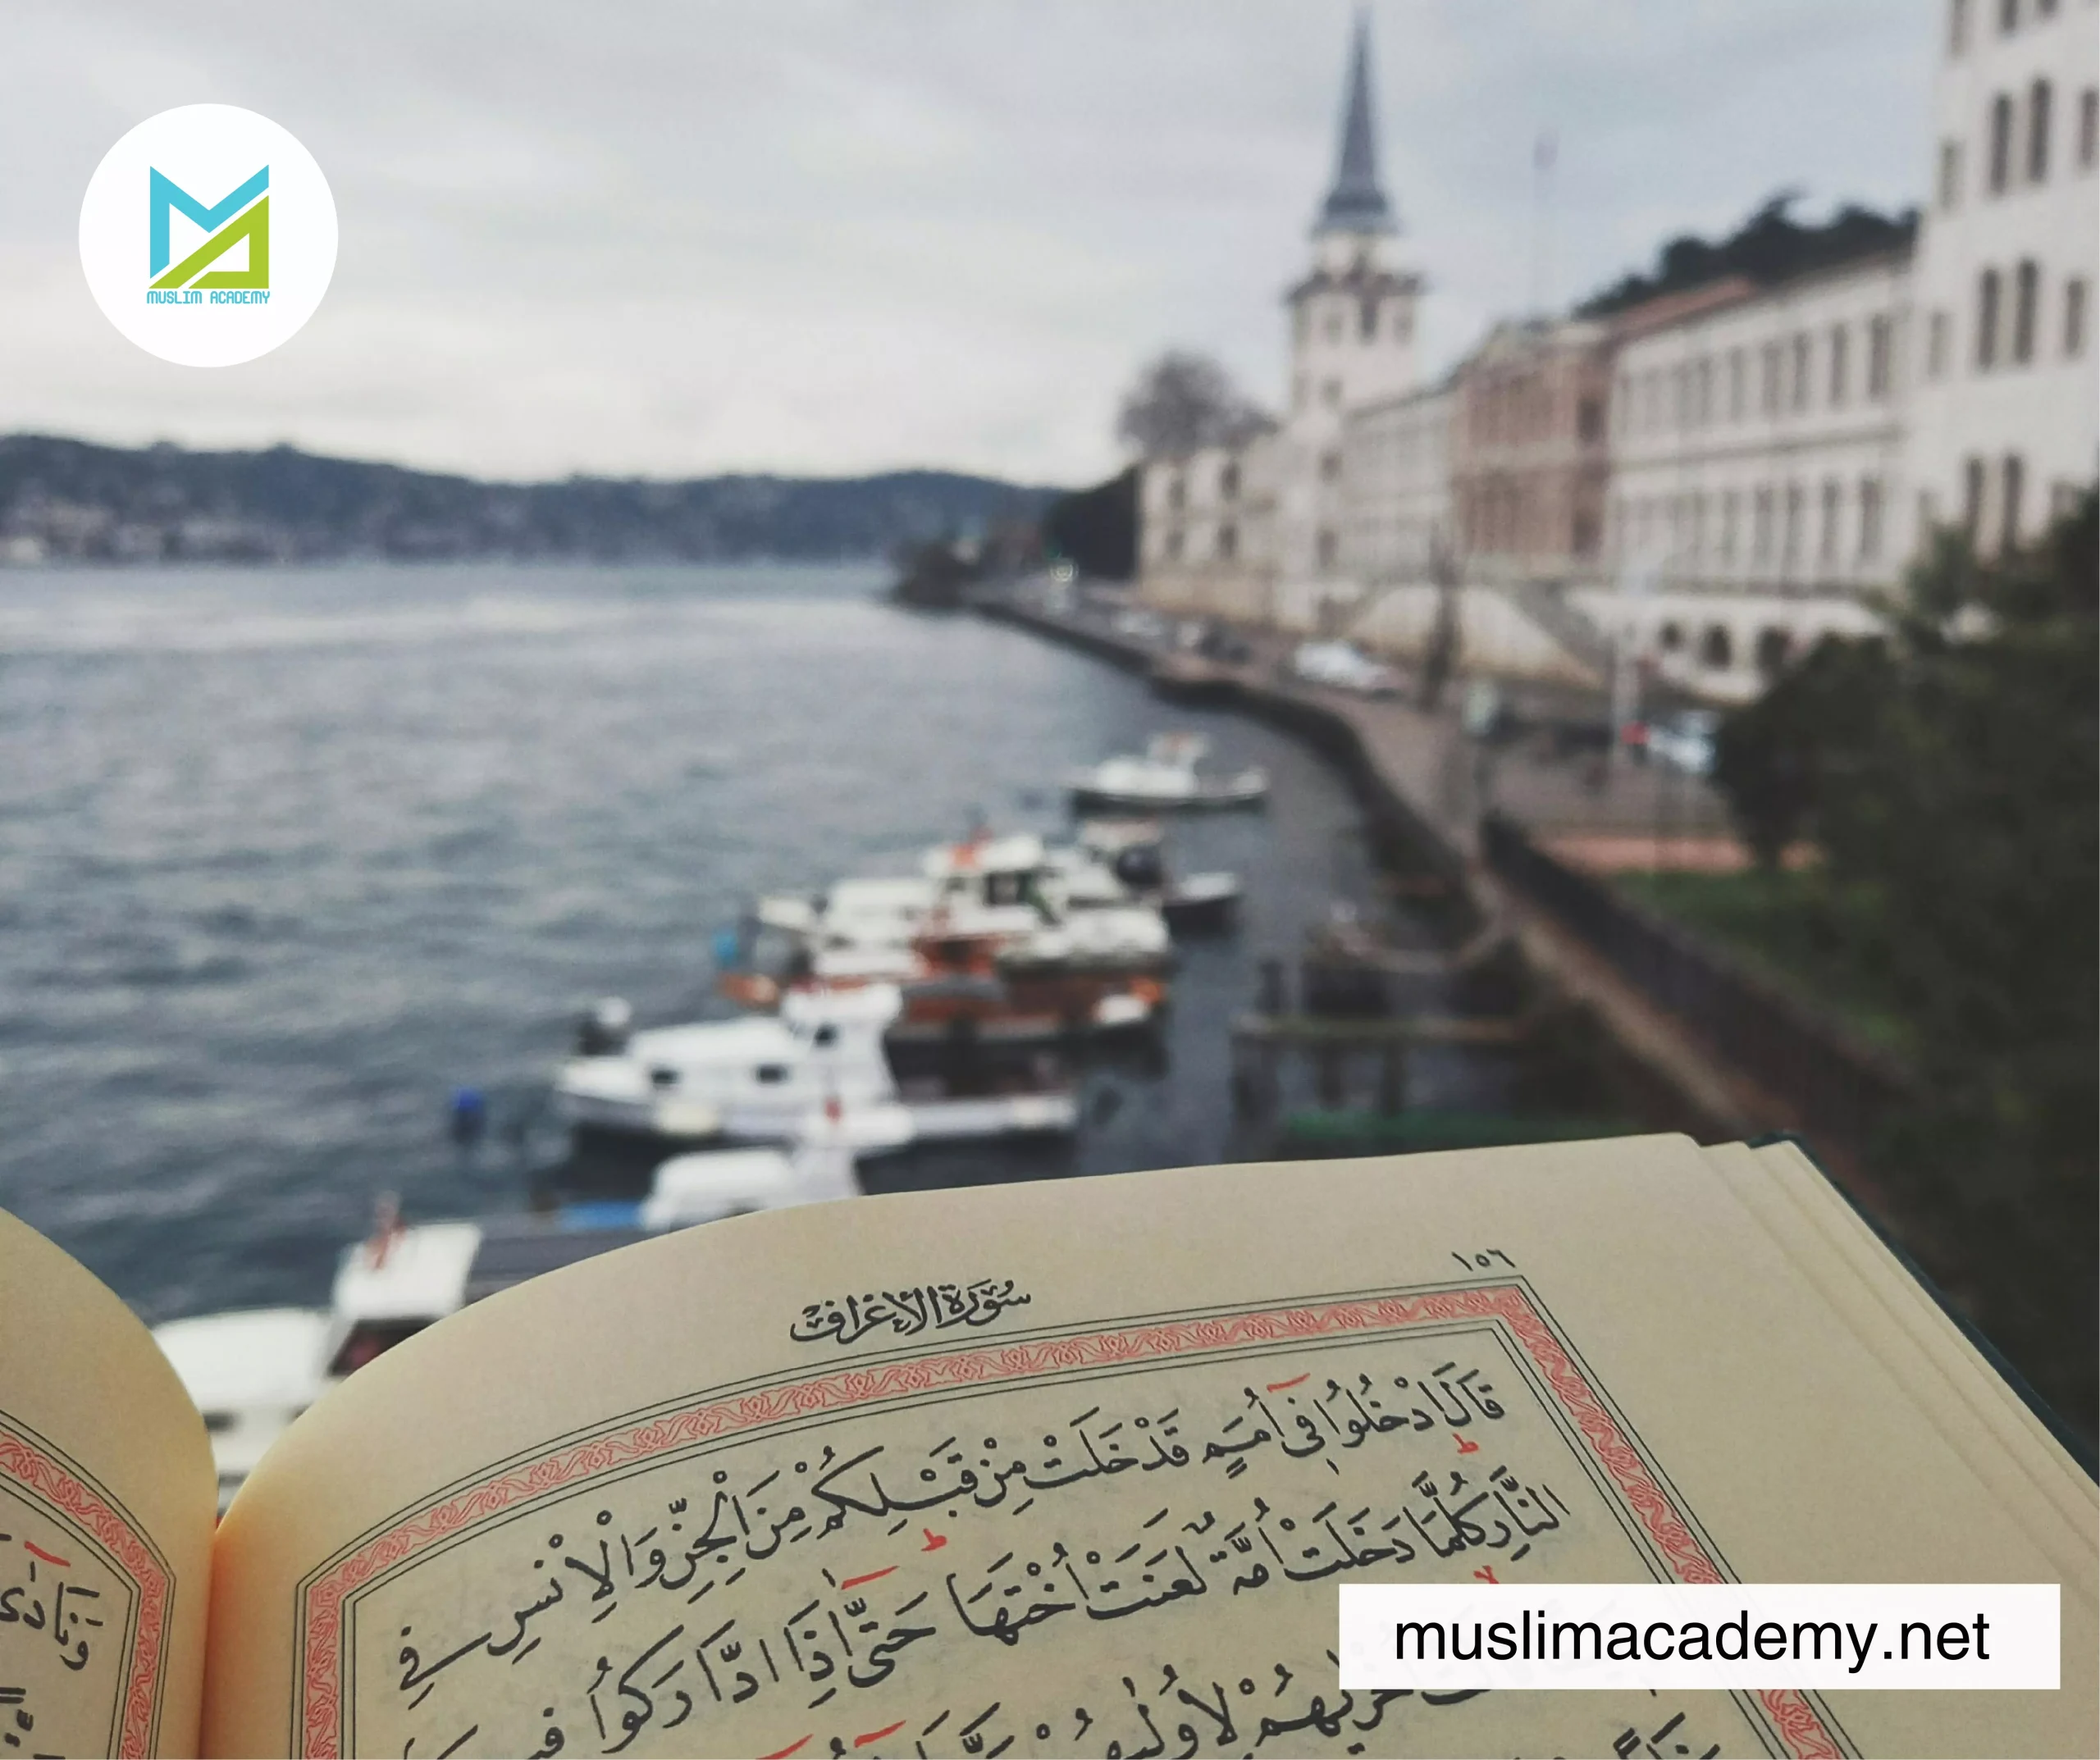 MUSLIM ACADEMY
١٥٦
سُورَةُ الْاَعْرَافِ
قَالَ ادْخُلُوا فِٓى اُمَمٍ قَدْ خَلَتْ مِنْ قَبْلِكُمْ مِنَ الْجِنِّ وَالْاِنْسِ فِى
النَّارِ كُلَّمَا دَخَلَتْ اُمَّةٌ لَعَنَتْ اُخْتَهَا حَتّٰٓى اِذَا ادَّارَكُوا
لِاُولٰيهُمْ
muslimacademy.net